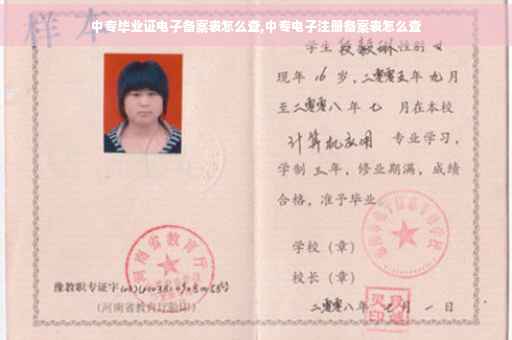 样本
中专毕业证电子备案表怎么查,中专电子注册备案表怎么查
学生 段毅琳 性别 女
现年 16 岁，二零零五年 九月
至二零零八年 七 月在本校
计算机应用 专业学习，
学制 三年，修业期满，成绩
合格，准予毕业
学校（章）
校长（章）
二零零八年 七月 一日
河南省教育厅
豫教职专证字
（河南省教育厅验印）